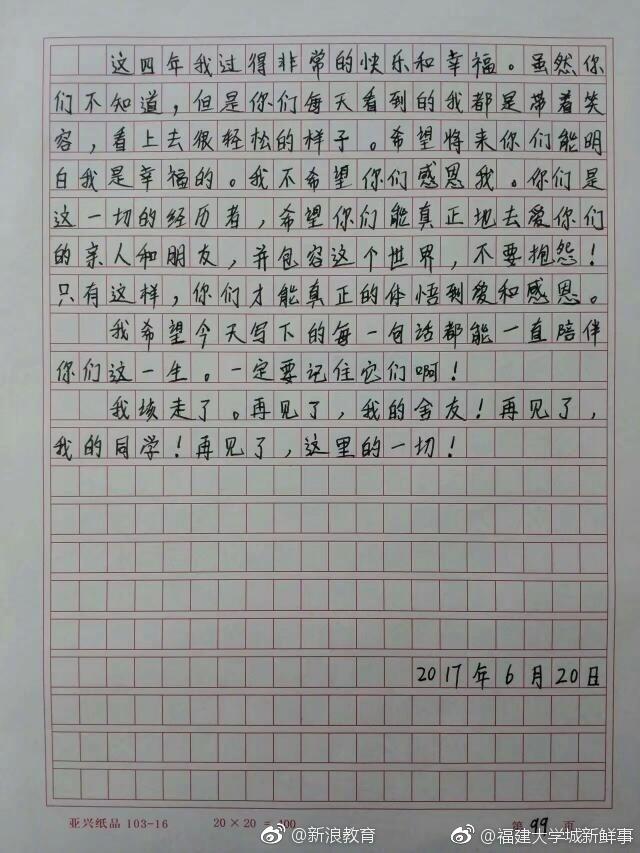 这四年我过得非常的快乐和幸福。虽然你
们不知道，但是你们每天看到的我都是带着笑
容，看上去很轻松的样子。希望将来你们能明
白我是幸福的。我不希望你们感恩我。你们是
这一切的经历者，希望你们能真正地去爱你们
的亲人和朋友，并包容这个世界，不要抱怨！
只有这样，你们才能真正的体悟到爱和感恩。
我希望今天写下的每一句话都能一直陪伴
你们这一生。一定要记住它们啊！
我该走了。再见了，我的舍友！再见了，
我的同学！再见了，这里的一切！
2017年6月20日
亚兴纸品 103-16 20×20=400 第 99 页
@新浪教育 @福建大学城新鲜事